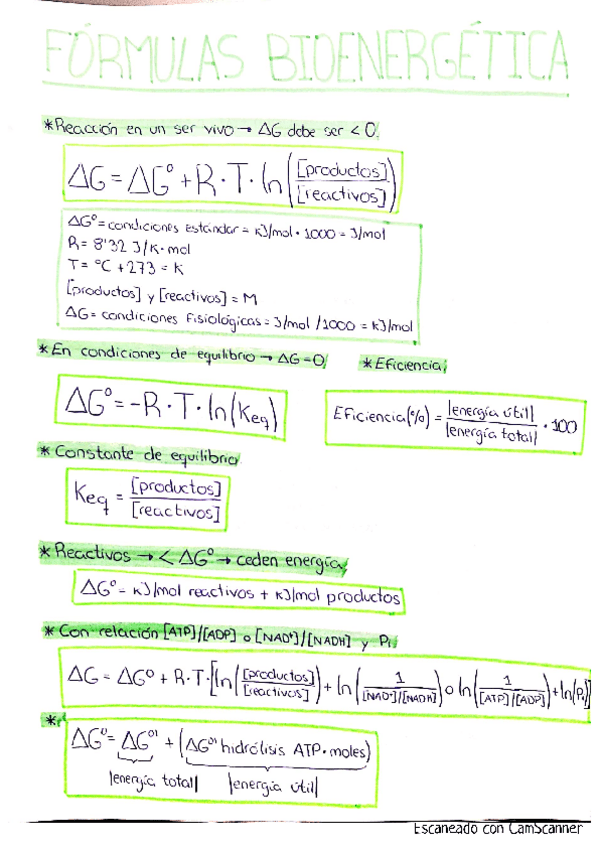 FÓRMULAS BIOENERGÉTICA
*Reacción en un ser vivo → ΔG debe ser < 0
ΔG = ΔG⁰ + R·T·ln([productos]/[reactivos])
ΔG⁰ = condiciones estándar = KJ/mol · 1000 = J/mol
R = 8'32 J/K·mol
T = °C + 273 = K
[productos] y [reactivos] = M
ΔG = condiciones fisiológicas = J/mol /1000 = KJ/mol
*En condiciones de equilibrio → ΔG = 0
*Eficiencia
ΔG⁰ = -R·T·ln(Keq)
Eficiencia(%) = |energía útil|/|energía total| · 100
*Constante de equilibrio
Keq = [productos]/[reactivos]
*Reactivos → < ΔG⁰ → ceden energía
ΔG⁰ = KJ/mol reactivos + KJ/mol productos
*Con relación [ATP]/[ADP] o [NAD⁺]/[NADH] y Pi
ΔG = ΔG⁰ + R·T·[ln([productos]/[reactivos]) + ln(1/[NAD⁺]/[NADH]) o ln(1/[ATP]/[ADP]) + ln(Pi)]
*
ΔG⁰ = ΔG⁰' + (ΔG⁰' hidrólisis ATP · moles)
|energía total| |energía útil|
Escaneado con CamScanner